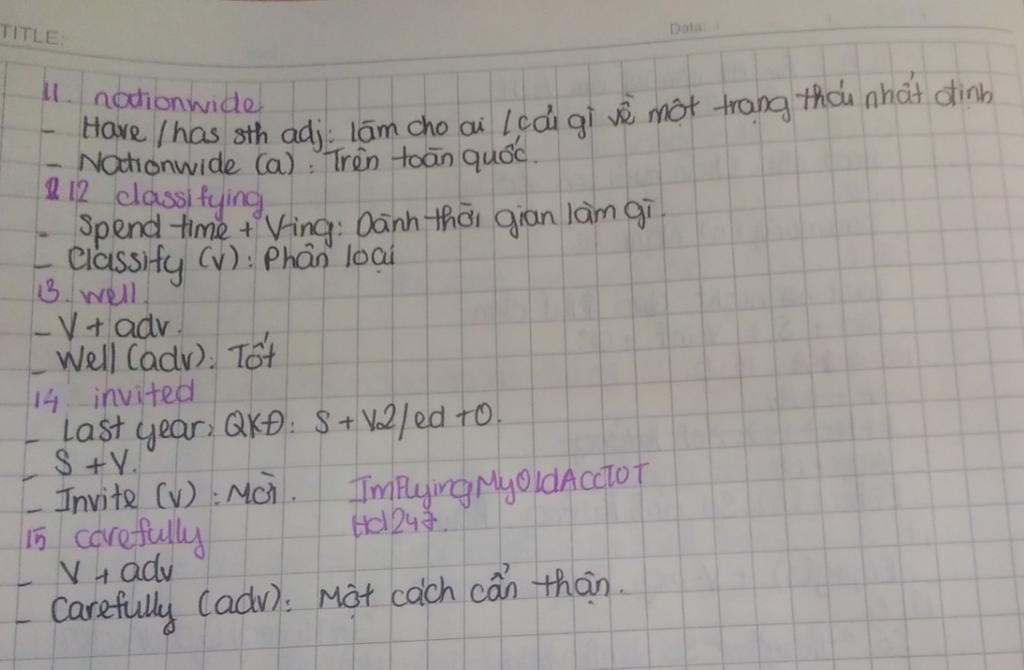 TITLE: Data:
11. nationwide
- Have/has sth adj: làm cho ai/cái gì về một trạng thái nhất định
- Nationwide (a): Trên toàn quốc.
12 classifying
- Spend time + V-ing: Dành thời gian làm gì.
- Classify (v): Phân loại
13. well.
- V + adv.
- Well (adv): Tốt
14 invited
- Last year, QKĐ: S + V2/ed + O.
- S + V.
- Invite (v): Mời. ImFlyingMyOldAccToT
15 carefully Hd247.
- V + adv
- Carefully (adv): Một cách cẩn thận.